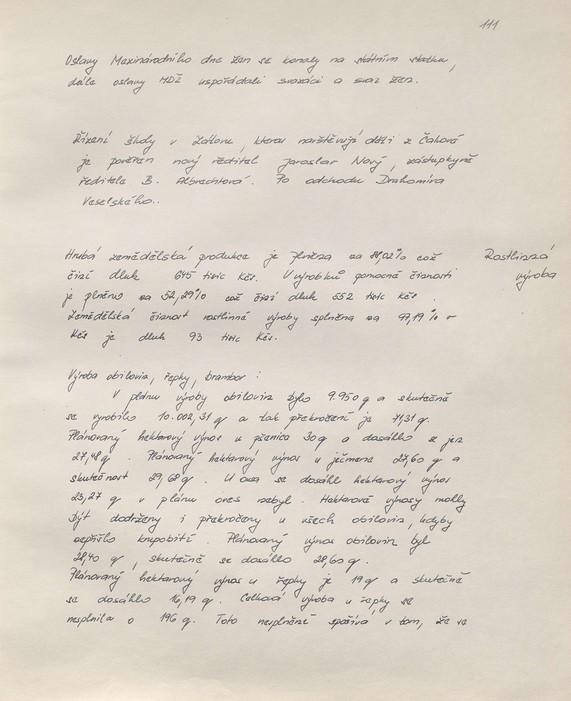 111
Oslavy Mezinárodního dne žen se konaly na státním statku,
dále oslavy MDŽ uspořádali svazáci a svaz žen.
Řízení školy v Lattonu, kterou navštěvují děti z Čakova
je pověřen nový ředitel Jaroslav Nový, zástupkyně
ředitele B. Albrechtová. Po odchodu Drahomíra
Veselského..
Hrubá zemědělská produkce je plněna na 88,02% což
činí dluh 645 tisíc Kčs. U výrobků pomocné činnosti
je plněno na 52,29% což činí dluh 552 tisíc Kčs.
Zemědělská činnost rostlinné výroby splněna na 97,19% v
Kčs je dluh 93 tisíc Kčs.
Rostlinná
výroba
Výroba obilovin, řepky, brambor :
V plánu výroby obilovin bylo 9.950 q a skutečně
se vyrobilo 10.002,31 q a tak překročení je 71,31 q.
Plánovaný hektarový výnos u pšenice 30 q a dosáhlo se jen
27,48 q. Plánovaný hektarový výnos u ječmene 27,60 q a
skutečnost 29,68 q. U ovsa se dosáhl hektarový výnos
23,27 q v plánu oves nebyl. Hektarové výnosy mohly
být dodrženy i překročeny u všech obilovin, kdyby
nepřišlo krupobití. Plánovaný výnos obilovin byl
28,40 q, skutečně se dosáhlo 28,60 q.
Plánovaný hektarový výnos u řepky je 19 q a skutečně
se dosáhlo 16,19 q. Celková výroba u řepky se
nesplnila o 196 q. Toto nesplnění spočívá v tom, že se